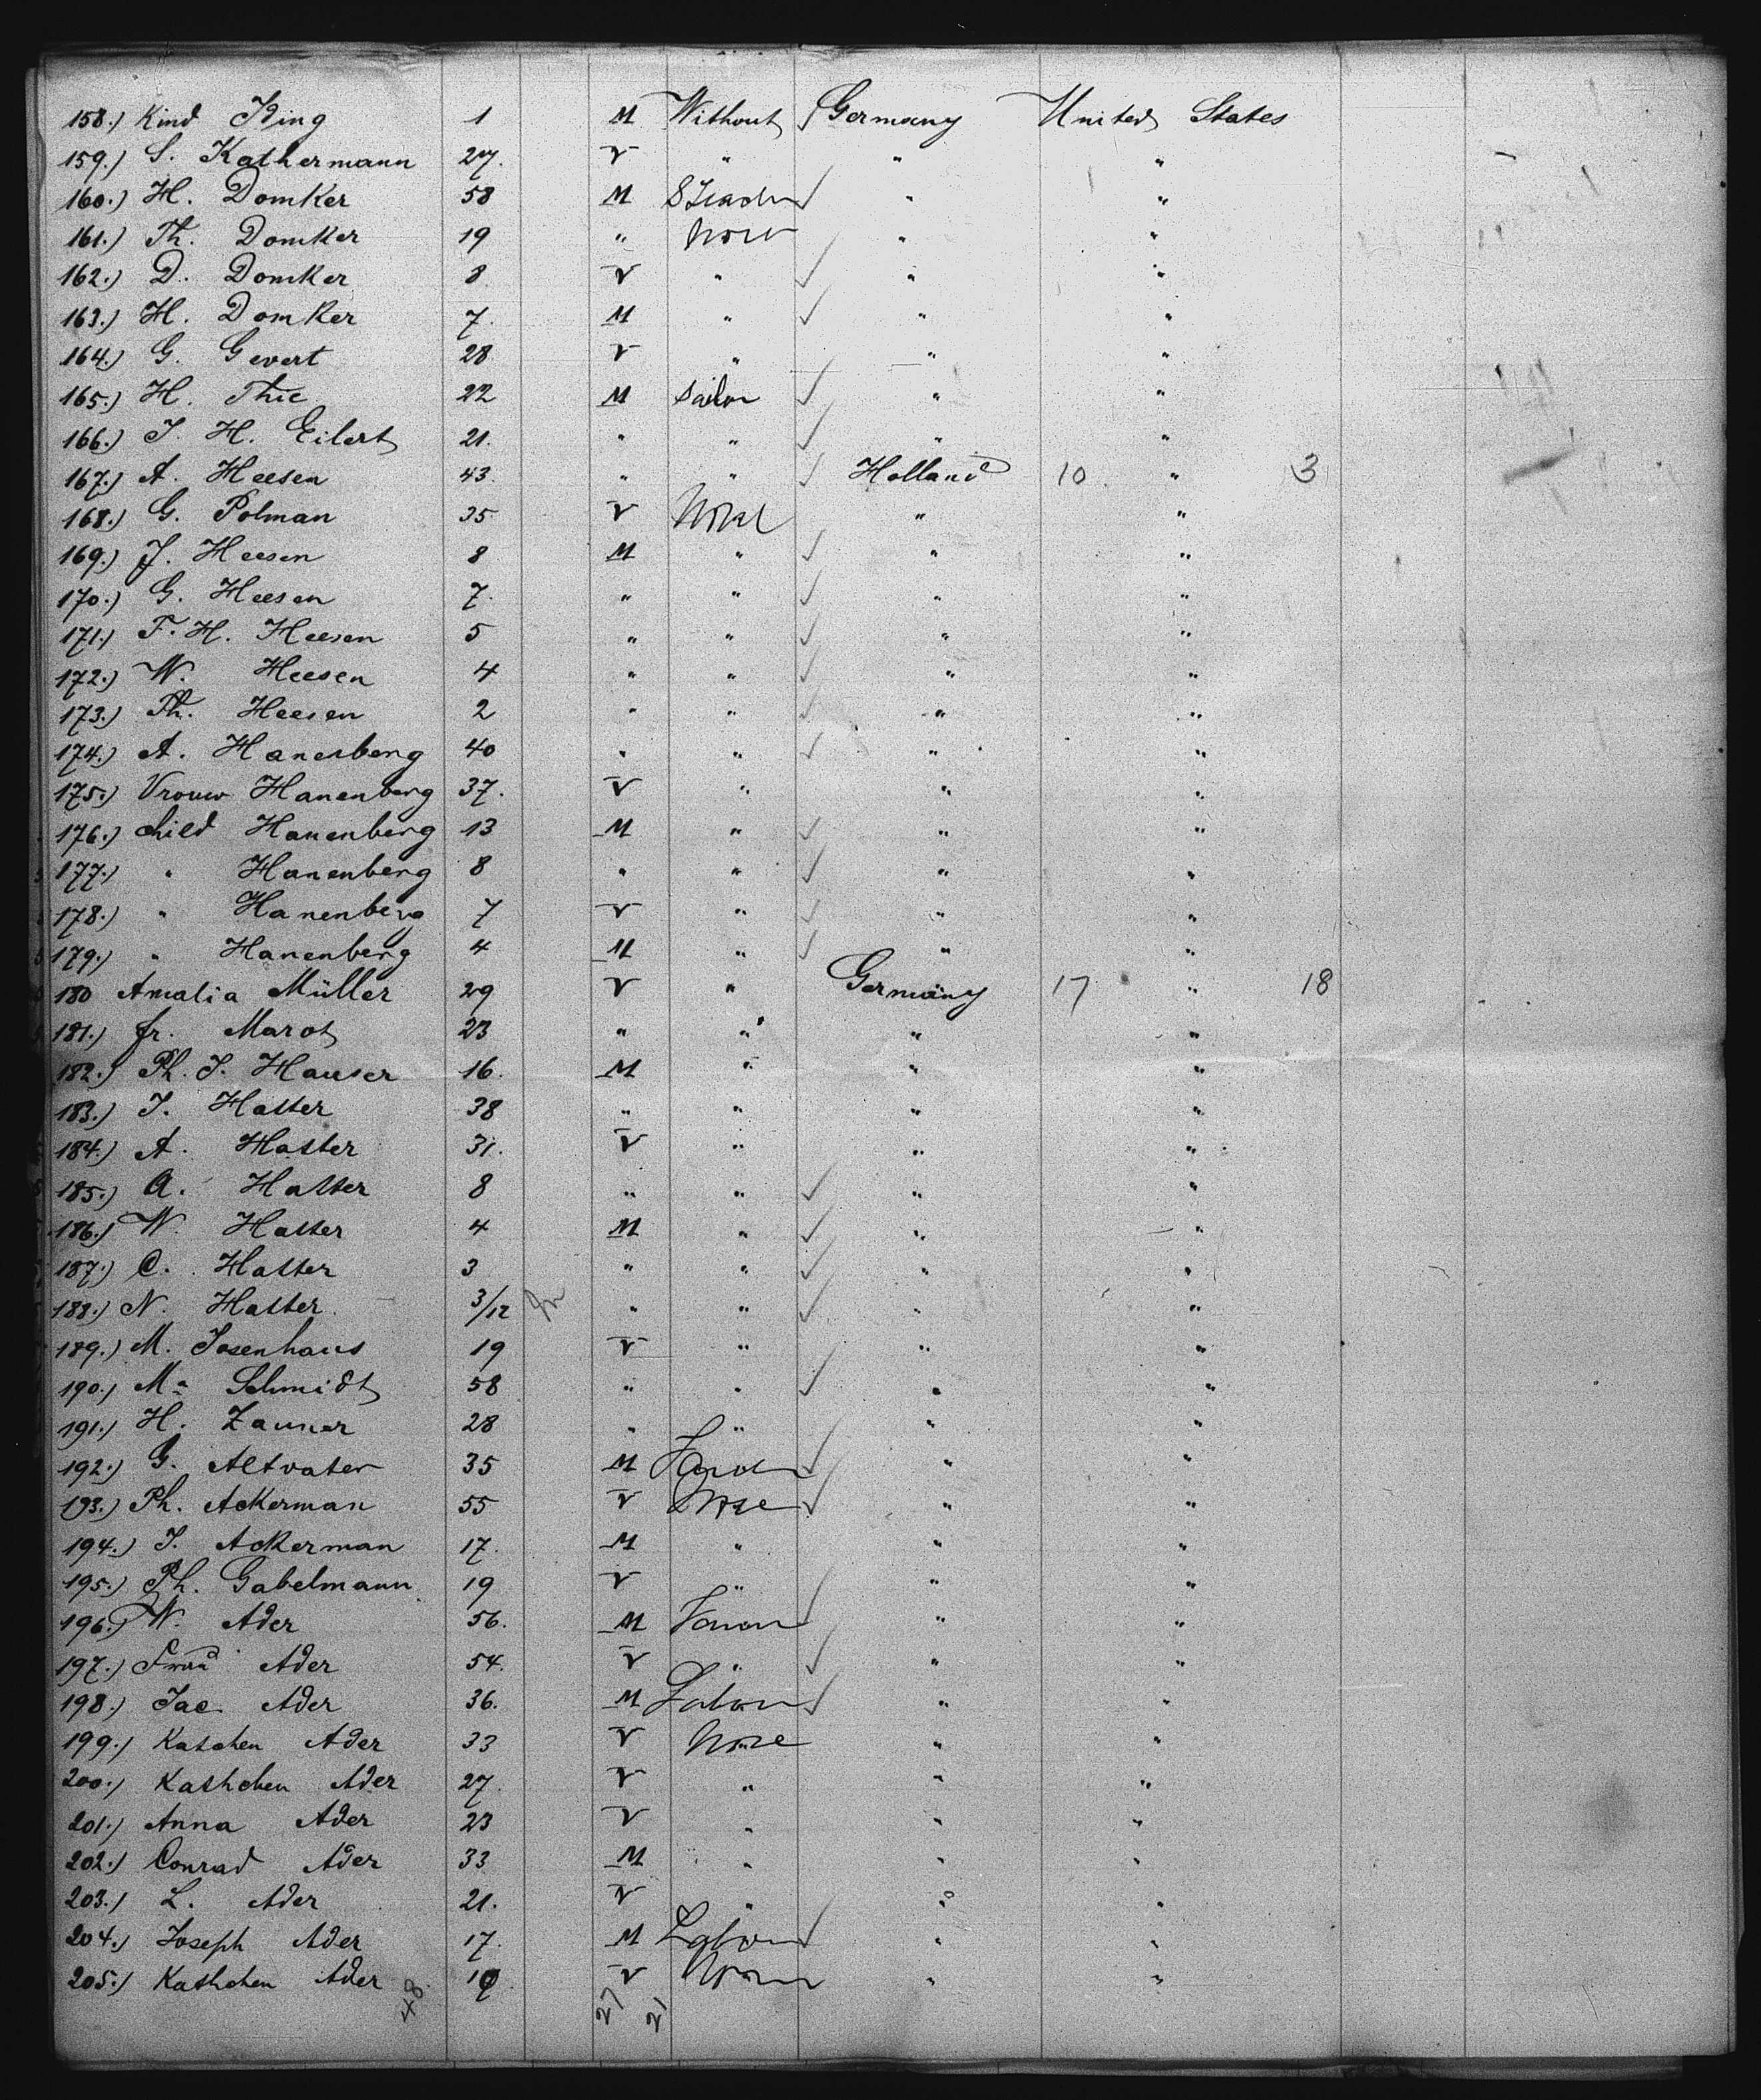 158.) Kind Bing 1 M Without Germany United States
159.) S. Kathermann 27. V " " "
160.) H. Domker 58 M " "
161.) Th. Domker 19 " None " "
162.) D. Domker 8 V " " "
163.) H. Domker 7. M " " "
164.) G. Gevert 28 V " " "
165.) H. Thie 22 M Sailor " "
166.) J. H. Eilert 21. " " " "
167.) A. Heesen 43. " " Holland 10 " 3
168.) G. Polman 35 V None " "
169.) J. Heesen 8 M " " "
170.) G. Heesen 7. " " " "
171.) F. H. Heesen 5 " " " "
172.) W. Heesen 4 " " " "
173.) Th. Heesen 2 " " " "
174.) A. Hanenberg 40 " " " "
175.) Vrouw Hanenberg 37. V " " "
176.) child Hanenberg 13 M " " "
177.) " Hanenberg 8 " " " "
178.) " Hanenberg 7 V " " "
179.) " Hanenberg 4 M " " "
180 Amalia Müller 29 V " Germany 17 " 18
181.) fr. Marot 23 " " " "
182.) Ph. J. Hauser 16. M " " "
183.) J. Hatter 38 " " " "
184.) A. Hatter 31. V " " "
185.) A. Hatter 8 " " " "
186.) W. Hatter 4 M " " "
187.) C. Hatter 3 " " " "
188.) N. Hatter 3/12 " " " "
189.) M. Josenhaus 19 V " " "
190.) Ma Schmidt 58 " " " "
191.) H. Zauner 28 " " " "
192.) G. Altvater 35 M " "
193.) Ph. Ackerman 55 V None " "
194.) J. Ackerman 17. M " " "
195.) Ph. Gabelmann 19 V " " "
196.) W. Ader 56. M " "
197.) Frau Ader 54. V " " "
198.) Jac. Ader 36. M Labor " "
199.) Katchen Ader 33 V None " "
200.) Kathchen Ader 27. V " " "
201.) Anna Ader 23 V " " "
202.) Conrad Ader 33 M " " "
203.) L. Ader 21. V " " "
204.) Joseph Ader 17. M Labor " "
205.) Kathchen Ader V None " "
48. 27 21